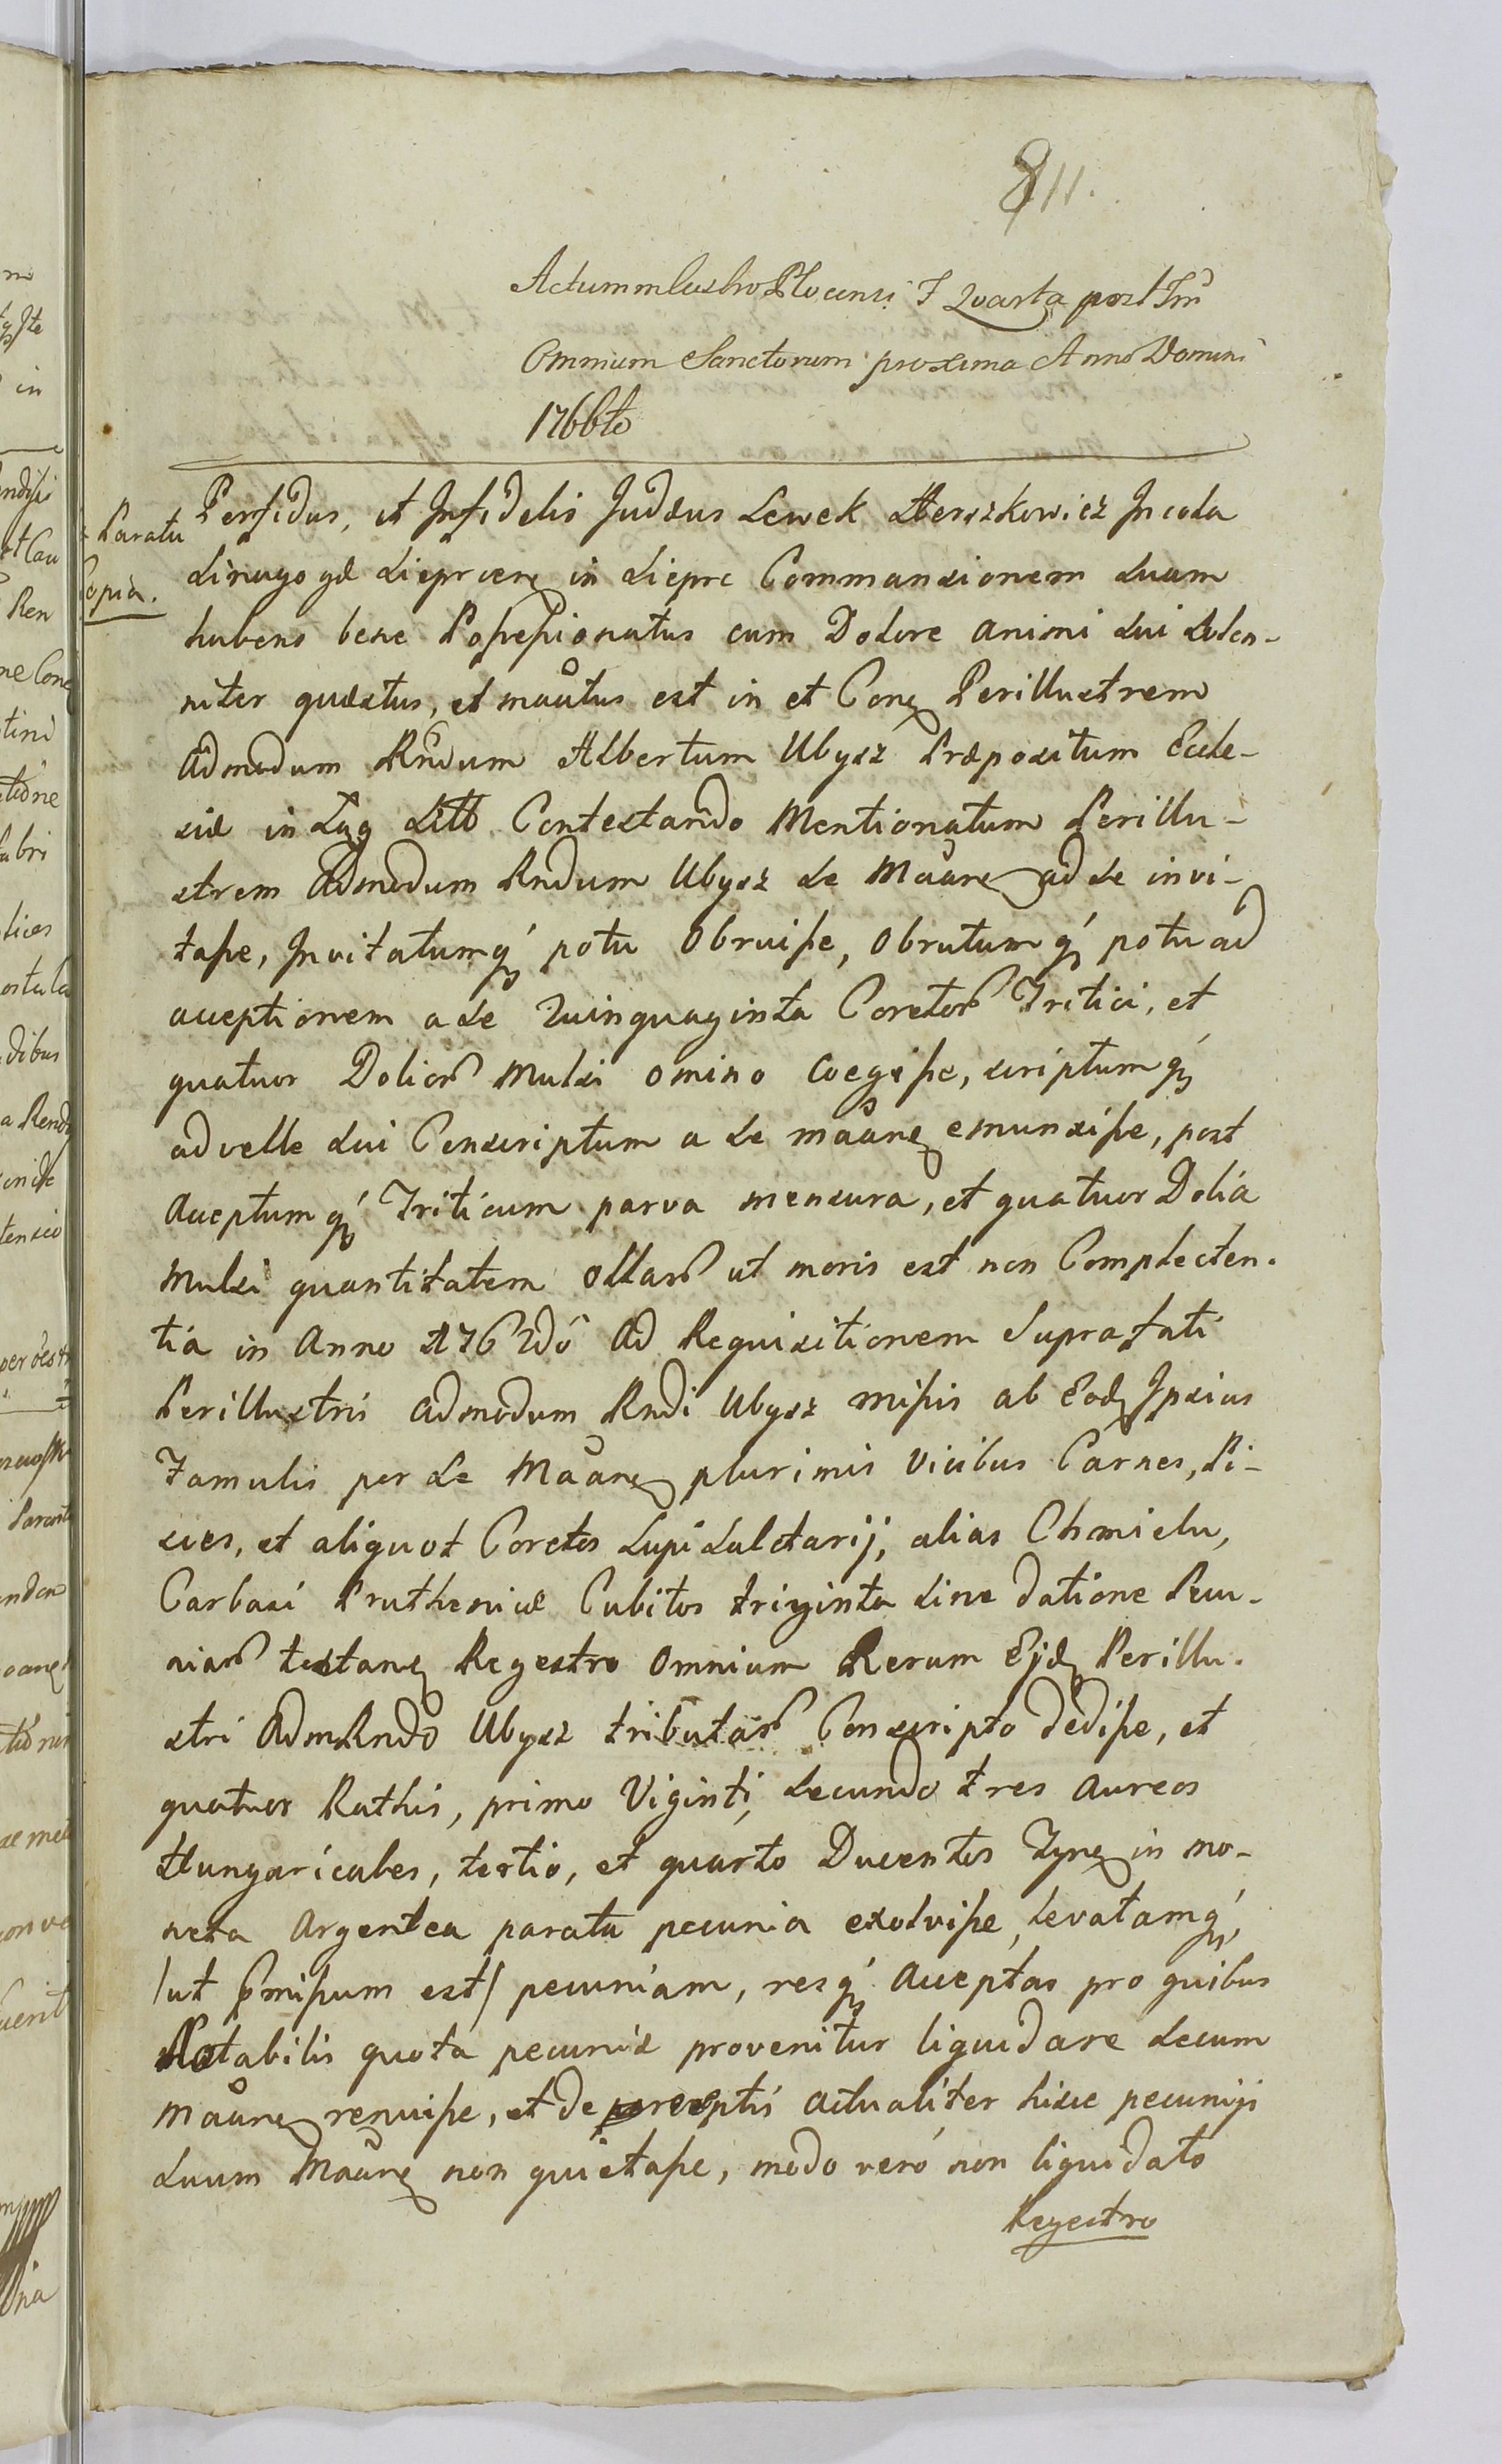 811.
Actum in Castro Plocensi F Quarta post Fm
Omnium Sanctorum proxima Anno Domini
1766to
Paratu
Copia.
Perfidus, et Infidelis Judæus Lewek Herszkowicz Incola
Sinagogæ Sieprcen in Sieprc Commansionem Suam
habens bene Possessionatus cum Dolore animi Sui Solen-
niter quæstus, et manûtus est in et Conq Perillustrem
Admodum Rndum Albertum Ubysz Præpositum Eccle-
siæ in Ług Sitt Contestando Mentionatum Perillu-
strem Admodum Rndum Ubysz Se Maãnę ad Se invi-
tasse, Invitatumq potu Obruisse, Obrutumq potu ad
acceptionem a Se Quinquaginta Coretor Tritici, et
quatuor Dolior Mulsi omino Coegisse, scriptumq
ad velle Sui Conscriptum a Se maãnę emunxisse, post
Acceptumq Triticum parva mensura, et quatuor Dolia
Mulsi quantitatem Ollar ut moris est non Complecten-
tia in Anno 1762do Ad Requisitionem Suprafati
Perillustris Admodum Rndi Ubysz missis ab Eodę Ipsius
Famulis per Se Maãnę plurimis Vicibus Carnes, Pi-
sces, et aliquot Coretos Lupi Salctarij, alias Chmielu,
Carbasi Prutheniæ Cubitos triginta Sine datione Pecu-
niar testanę Regestro Omnium Rerum Ejdę Perillu-
stri AdmRndo Ubysz tributar Conscripto dedisse, et
quatuor Rathis, primo Viginti, Secundo tres Aureos
Hungaricales, tertio, et quarto Ducentos Tynę in mo-
neta Argentea parata pecunia exolvisse, Levatamq,
/ut pmissum est/ pecuniam, resq Acceptas pro quibus
Notabilis quota pecuniæ provenitur liquidare Secum
maãnę renuisse, et de perceptis actualiter hisce pecunijs
Suum Maãnę non quietasse, modo vero non liquidato
Regestro